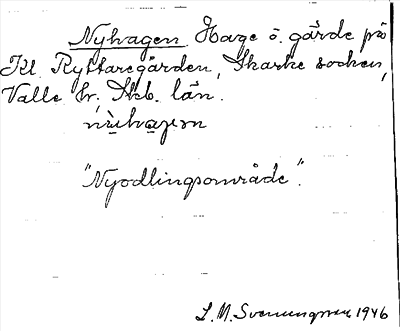 Nyhagen Hage o. gärde på
Kl. Ryttaregården, Skarke socken,
Valle hr, Skb. län.
nùhaɡən
"Nyodlingsområde".
S. M. Svenungsson 1946